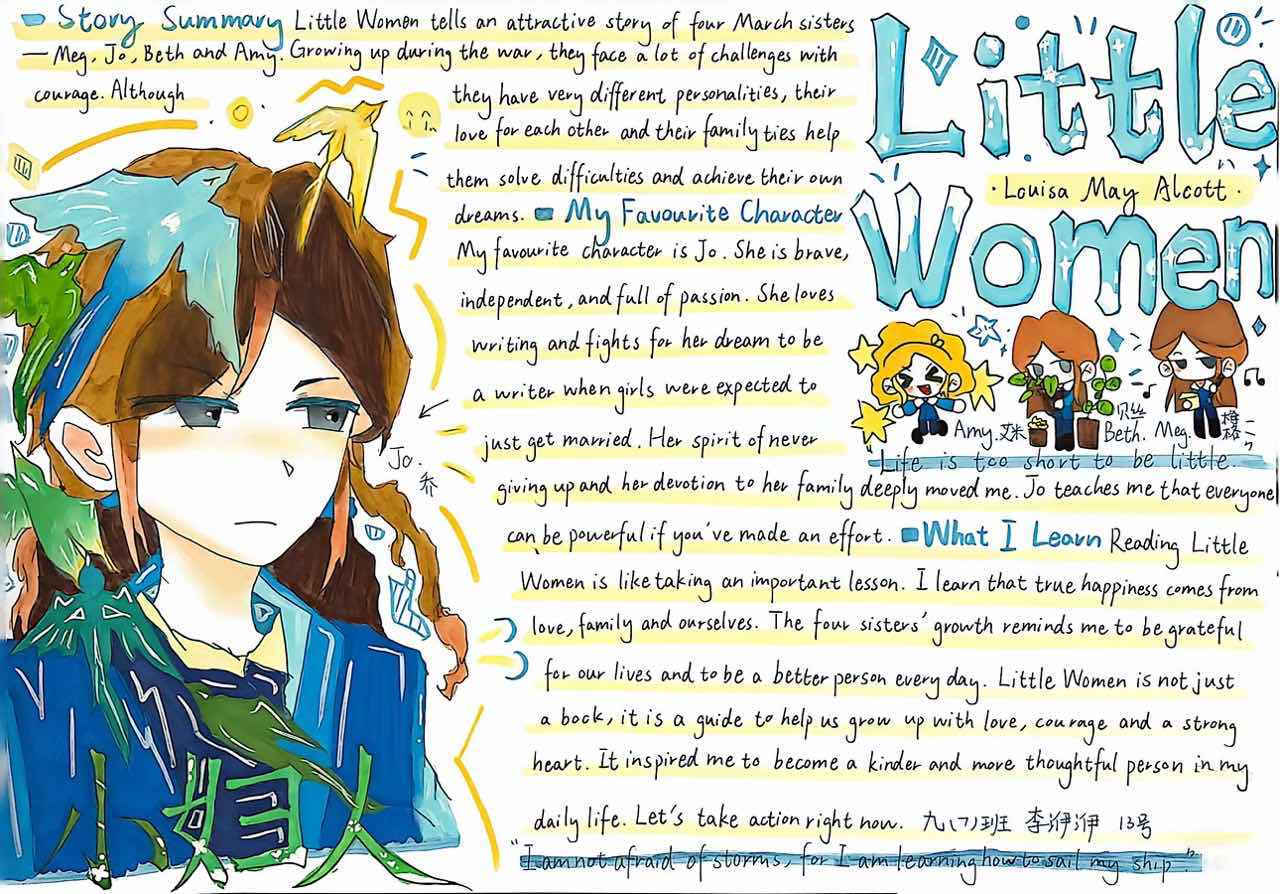 Story Summary Little Women tells an attractive story of four March sisters
— Meg, Jo, Beth and Amy. Growing up during the war, they face a lot of challenges with
courage. Although
they have very different personalities, their
love for each other and their family ties help
them solve difficulties and achieve their own
dreams. My Favourite Character
My favourite character is Jo. She is brave,
independent, and full of passion. She loves
writing and fights for her dream to be
a writer when girls were expected to
just get married. Her spirit of never
giving up and her devotion to her family deeply moved me. Jo teaches me that everyone
can be powerful if you've made an effort. What I Learn Reading Little
Women is like taking an important lesson. I learn that true happiness comes from
love, family and ourselves. The four sisters' growth reminds me to be grateful
for our lives and to be a better person every day. Little Women is not just
a book, it is a guide to help us grow up with love, courage and a strong
heart. It inspired me to become a kinder and more thoughtful person in my
daily life. Let's take action right now. 九(7)班 李洢洢 13号
"I am not afraid of storms, for I am learning how to sail my ship."
Little
·Louisa May Alcott·
Women
Amy.艾米
Beth.贝丝
Meg.梅格
"Life is too short to be little."
Jo.
乔
小妇人